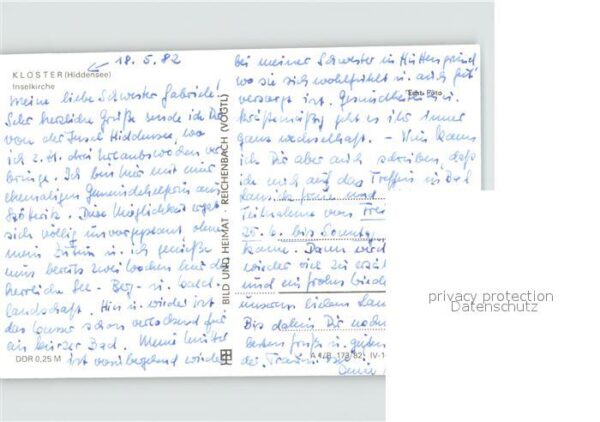 18. 5. 82
KLOSTER (Hiddensee)
Inselkirche
Meine liebe Schwester Gabriele!
Sehr herzliche Grüße sende ich Dir
von der Insel Hiddensee, wo
ich z. Zt. drei Urlaubswochen ver
bringe. Ich bin hier mit einer
ehemaligen Gemeindehelferin aus
Diese Möglichkeit ergab
sich völlig unvorgeplant ohne
mein Zutun u. ich genieße
nun bereits zwei Wochen hier die
herrliche See- Berg- u. Wald-
landschaft. Hin u. wieder ist
das Wasser schon verlockend für
ein kurzes Bad. Meine Mutter
ist vorübergehend wieder
DDR 0,25 M
BILD UND HEIMAT · REICHENBACH (VOGTL)
bei meiner Schwester in Hüttengrund
wo sie sich wohlfühlt u. auch gut
versorgt ist. Gesundheitlich u.
kräftemäßig geht es ihr immer
ganz wechselhaft. – Nun kann
ich Dir aber auch schreiben, daß
ich mich auf das Treffen in Bad
freue und
Teilnahme von
25. 6. bis Sonntag
kann. Dann
wieder viel zu
und ein frohes
unserm lieben
Bis dahin Dir noch
besten
Deine
Echt Foto
A 1/B 173/82 IV-1
privacy protection
Datenschutz